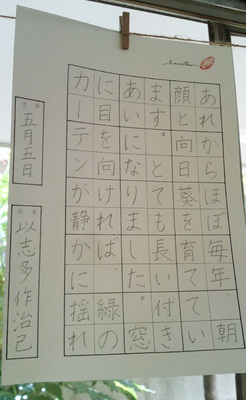 あれからほぼ毎年、朝
顔と向日葵を育ててい
ます。とても長い付き
あいになりました。窓
に目を向ければ、緑の
カーテンが静かに揺れ
五月五日
以志多作治己